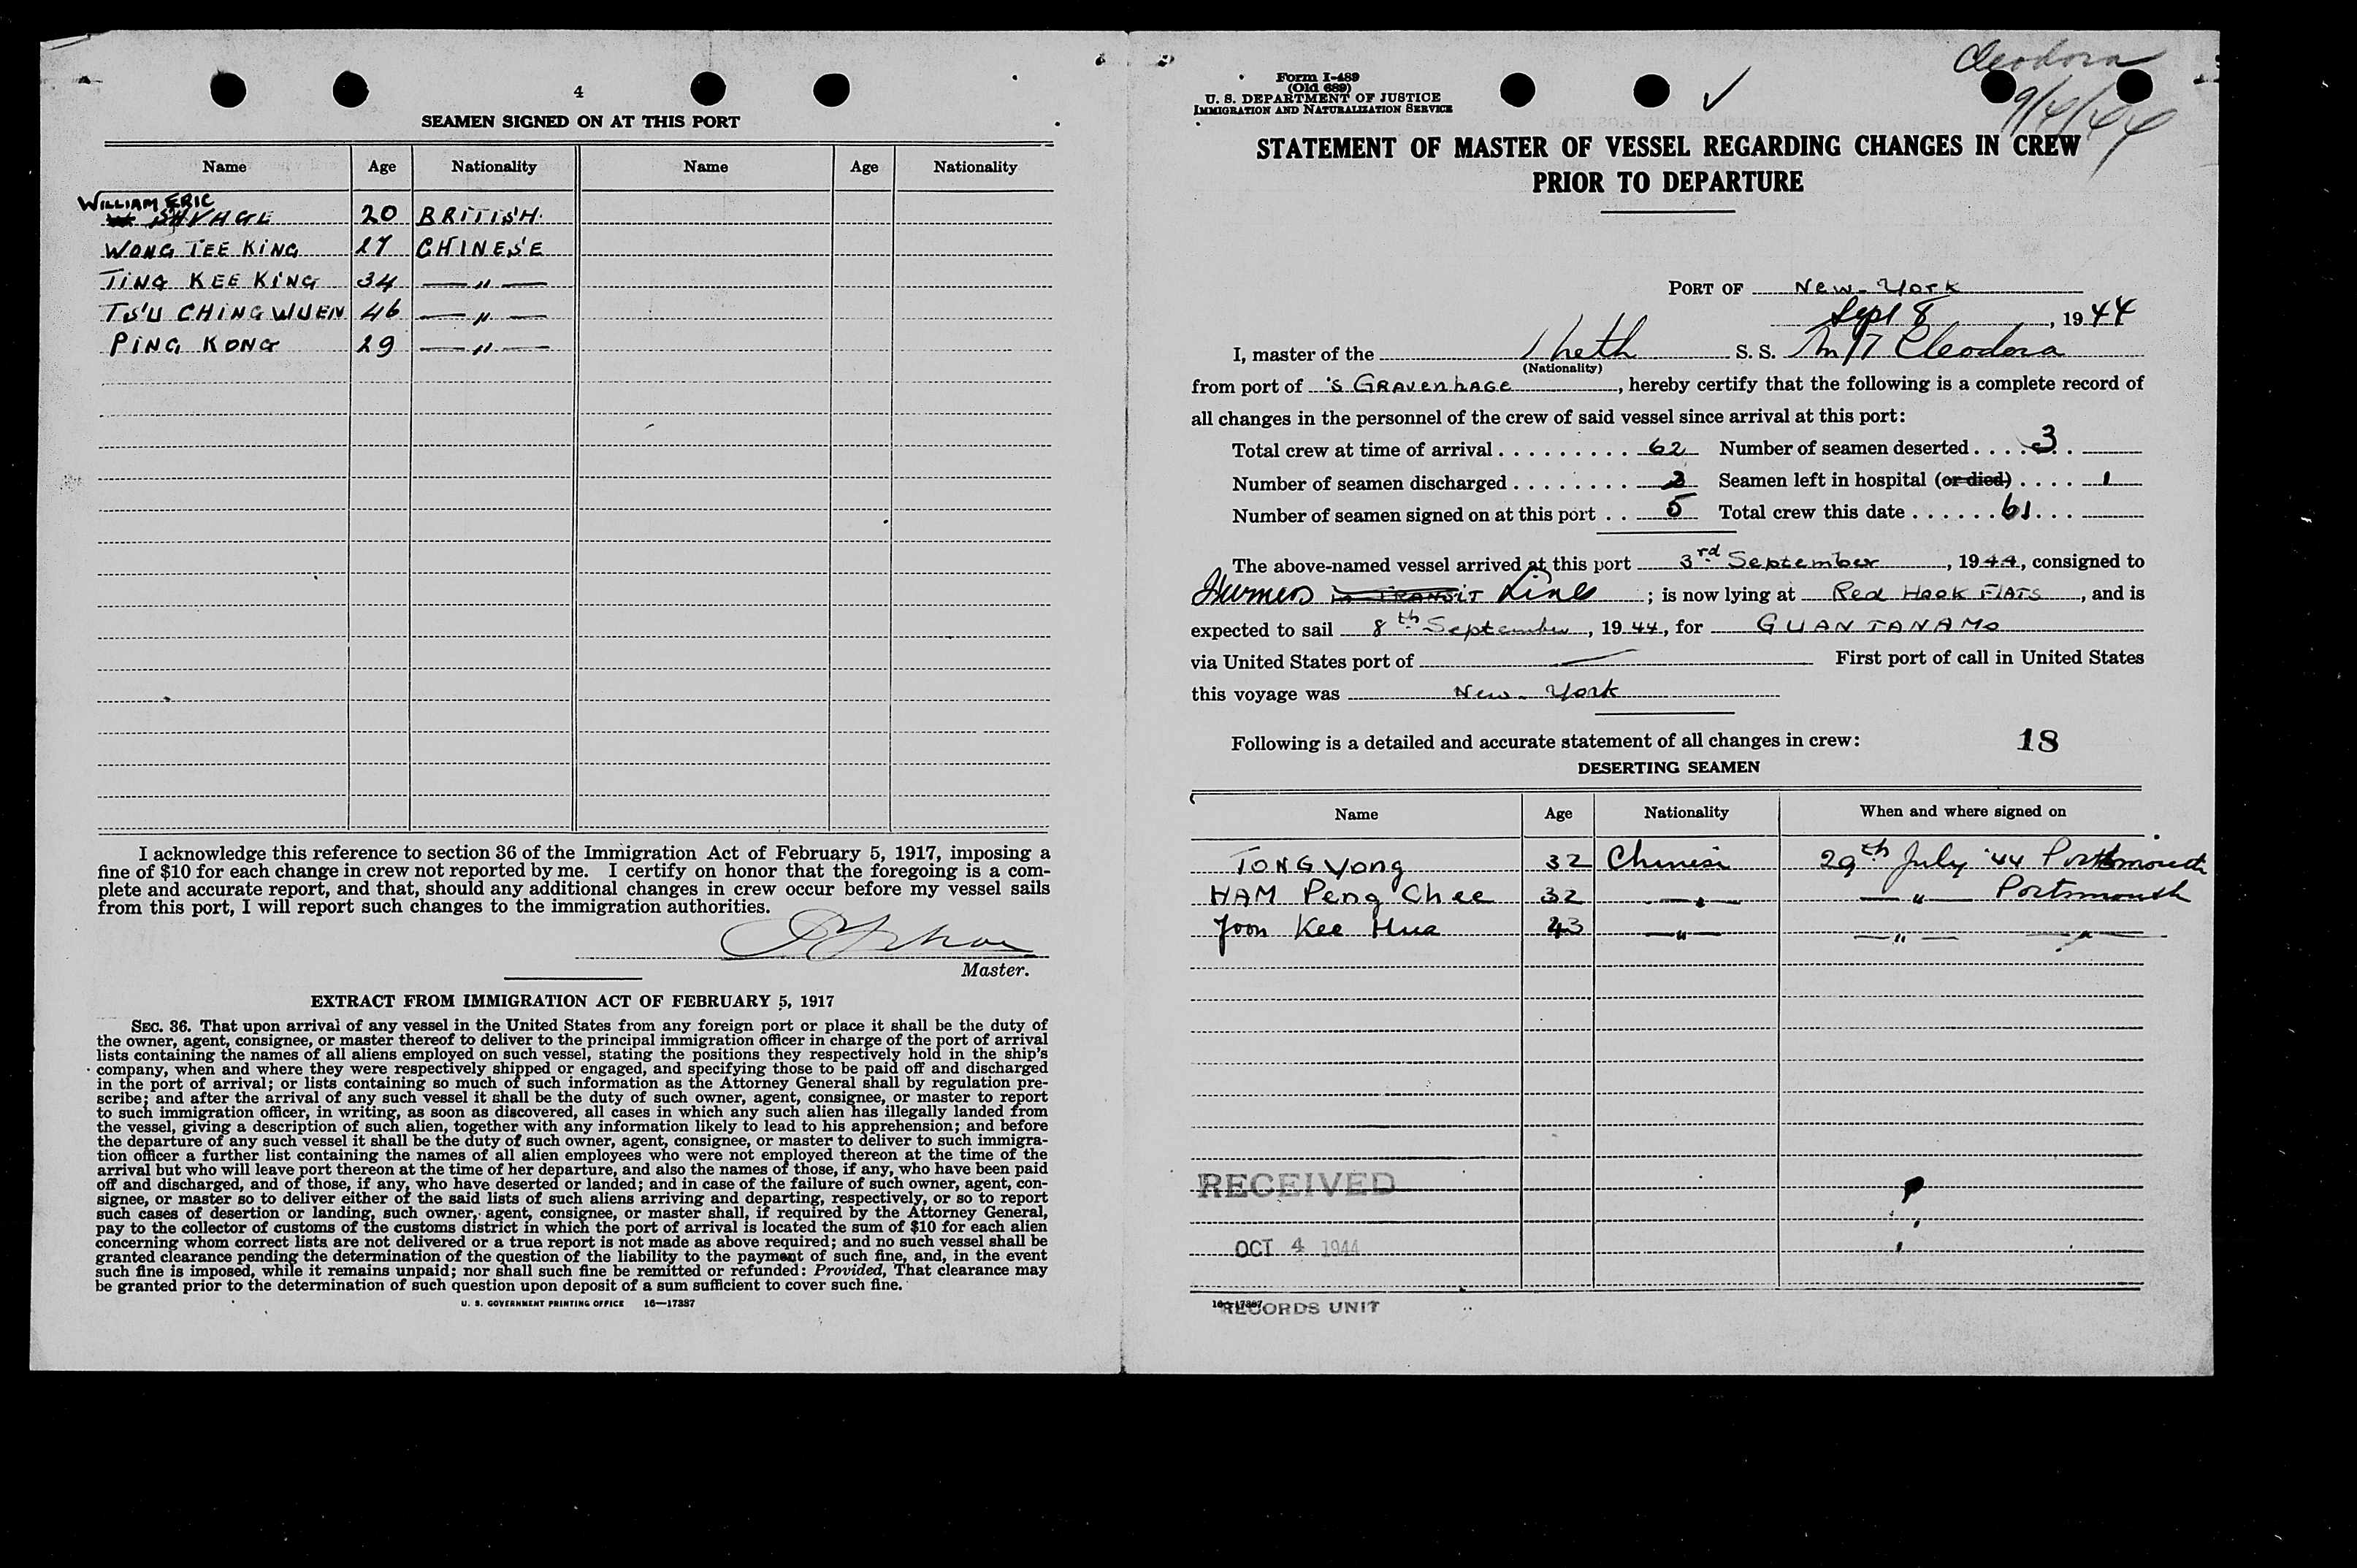 4
SEAMEN SIGNED ON AT THIS PORT
Name Age Nationality Name Age Nationality
WILLIAM ERIC
SAVAGE 20 BRITISH
WONG TEE KING 27 CHINESE
TING KEE KING 34 — " —
TS'U CHING WUEN 46 — " —
PING KONG 29 — " —
I acknowledge this reference to section 36 of the Immigration Act of February 5, 1917, imposing a
fine of $10 for each change in crew not reported by me. I certify on honor that the foregoing is a com-
plete and accurate report, and that, should any additional changes in crew occur before my vessel sails
from this port, I will report such changes to the immigration authorities.
Master.
EXTRACT FROM IMMIGRATION ACT OF FEBRUARY 5, 1917
SEC. 36. That upon arrival of any vessel in the United States from any foreign port or place it shall be the duty of
the owner, agent, consignee, or master thereof to deliver to the principal immigration officer in charge of the port of arrival
lists containing the names of all aliens employed on such vessel, stating the positions they respectively hold in the ship's
company, when and where they were respectively shipped or engaged, and specifying those to be paid off and discharged
in the port of arrival; or lists containing so much of such information as the Attorney General shall by regulation pre-
scribe; and after the arrival of any such vessel it shall be the duty of such owner, agent, consignee, or master to report
to such immigration officer, in writing, as soon as discovered, all cases in which any such alien has illegally landed from
the vessel, giving a description of such alien, together with any information likely to lead to his apprehension; and before
the departure of any such vessel it shall be the duty of such owner, agent, consignee, or master to deliver to such immigra-
tion officer a further list containing the names of all alien employees who were not employed thereon at the time of the
arrival but who will leave port thereon at the time of her departure, and also the names of those, if any, who have been paid
off and discharged, and of those, if any, who have deserted or landed; and in case of the failure of such owner, agent, con-
signee, or master so to deliver either of the said lists of such aliens arriving and departing, respectively, or so to report
such cases of desertion or landing, such owner, agent, consignee, or master shall, if required by the Attorney General,
pay to the collector of customs of the customs district in which the port of arrival is located the sum of $10 for each alien
concerning whom correct lists are not delivered or a true report is not made as above required; and no such vessel shall be
granted clearance pending the determination of the question of the liability to the payment of such fine, and, in the event
such fine is imposed, while it remains unpaid; nor shall such fine be remitted or refunded: Provided, That clearance may
be granted prior to the determination of such question upon deposit of a sum sufficient to cover such fine.
U. S. GOVERNMENT PRINTING OFFICE 16—17387
Cleodora
9/4/44
Form I-489
(Old 689)
U. S. DEPARTMENT OF JUSTICE
IMMIGRATION AND NATURALIZATION SERVICE
STATEMENT OF MASTER OF VESSEL REGARDING CHANGES IN CREW
PRIOR TO DEPARTURE
PORT OF New-York
Sept 8, 1944
I, master of the Neth S. S. M/T Cleodora
(Nationality)
from port of 's GRAVENHAGE, hereby certify that the following is a complete record of
all changes in the personnel of the crew of said vessel since arrival at this port:
Total crew at time of arrival . . . . . . . . . 62 Number of seamen deserted . . . . 3
Number of seamen discharged . . . . . . . . 2 Seamen left in hospital (or died) . . . . 1
Number of seamen signed on at this port . . 5 Total crew this date . . . . . . 61
The above-named vessel arrived at this port 3rd September, 1944, consigned to
TRANSIT Line; is now lying at Red Hook FLATS, and is
expected to sail 8th September, 1944, for GUANTANAMO
via United States port of — First port of call in United States
this voyage was New-York
Following is a detailed and accurate statement of all changes in crew: 18
DESERTING SEAMEN
Name Age Nationality When and where signed on
TONG Yong 32 Chinese 29th July '44 Portsmouth
HAM Peng Chee 32 — " — — " — Portsmouth
Joon Kee Hua 43 — " — — " — — " —
RECEIVED
OCT 4 1944
16—17387
RECORDS UNIT